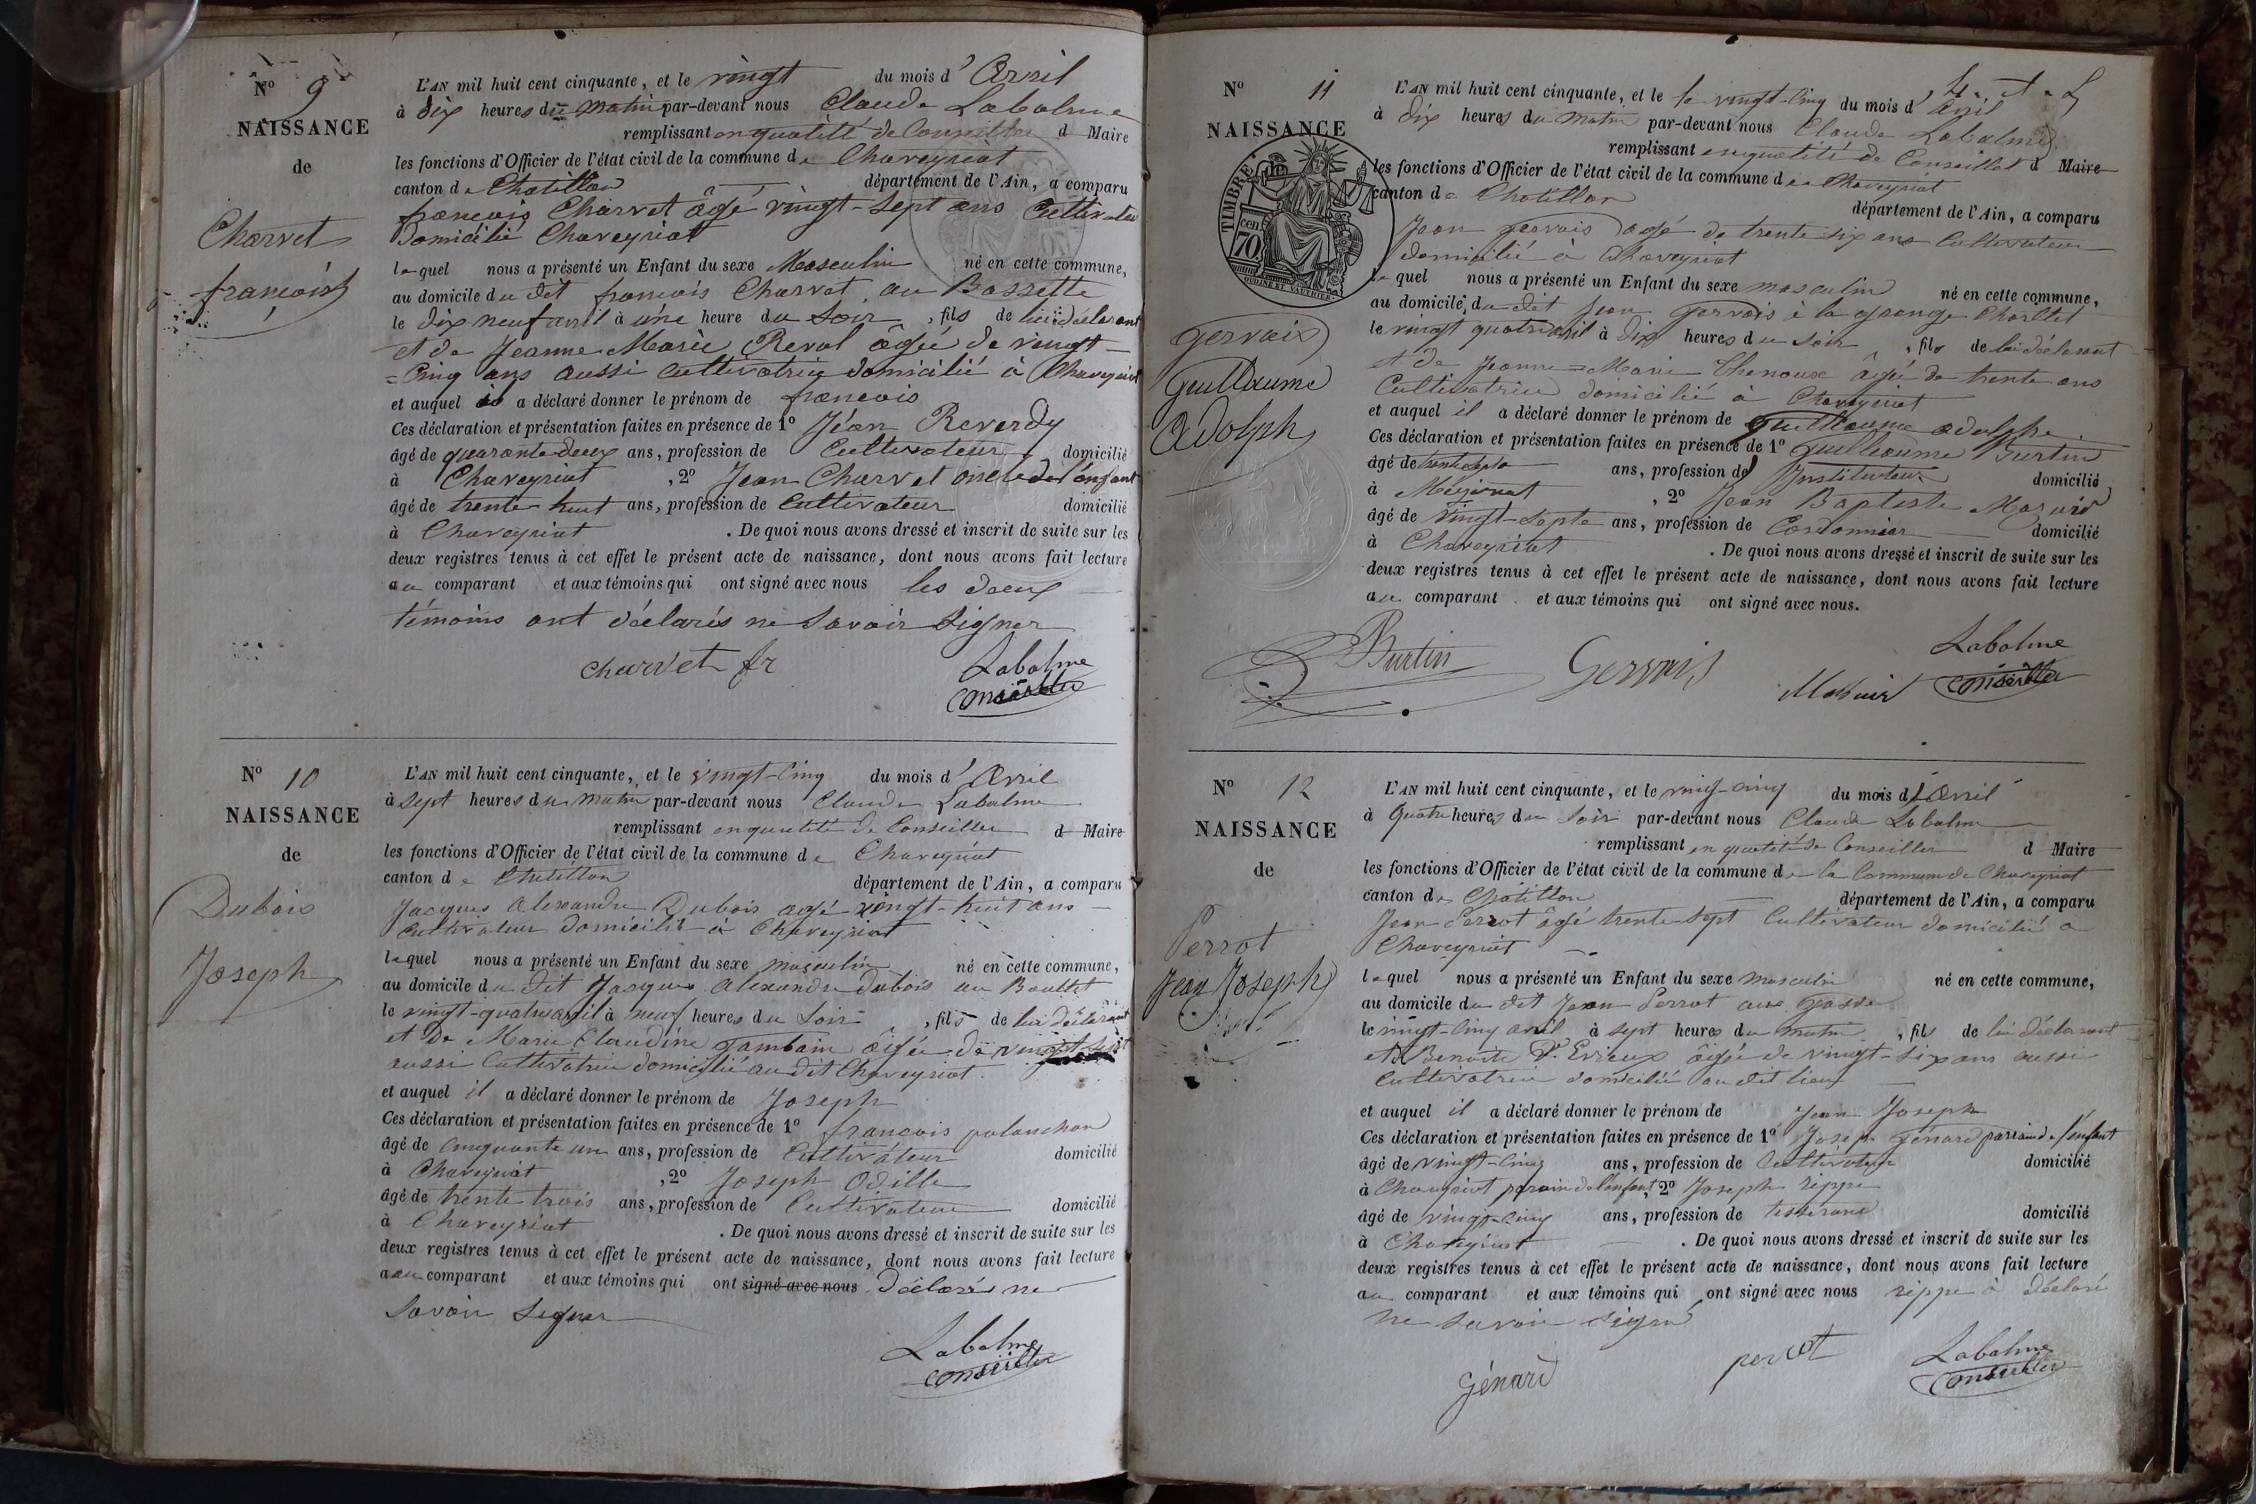 N° 9
NAISSANCE
de
Charvet
françois
L'AN mil huit cent cinquante, et le vingt du mois d'Avril
à dix heures du matin par-devant nous Claude Labalme
remplissant en qualité de Conseiller d Maire
les fonctions d'Officier de l'état civil de la commune de Chaveyriat
canton de Chatillon département de l'Ain, a comparu
françois Charvet âgé vingt-sept ans Cultivateur
domicilié Chaveyriat
lequel nous a présenté un Enfant du sexe Masculin né en cette commune,
au domicile du dit françois Charvet au Bassette
le dix neuf avril à une heure du Soir, fils de lui déclarant
et de Jeanne Marie Reval âgée de vingt-
-Cinq ans aussi cultivatrice domicilié à Chaveyriat
et auquel il a déclaré donner le prénom de françois
Ces déclaration et présentation faites en présence de 1° Jéan Reverdy
âgé de quarante-deux ans, profession de Cultivateur domicilié
à Chaveyriat, 2° Jean Charvet oncle de l'énfant
âgé de trente huit ans, profession de Cultivateur domicilié
à Chaveyriat. De quoi nous avons dressé et inscrit de suite sur les
deux registres tenus à cet effet le présent acte de naissance, dont nous avons fait lecture
au comparant et aux témoins qui ont signé avec nous les deux
témoins ont déclarés ne Savoir Signer
charvet fr Labalme
Conseiller
N° 10
NAISSANCE
de
Dubois
Joseph
L'AN mil huit cent cinquante, et le vingt-Cinq du mois d'Avril
à sept heures du matin par-devant nous Claude Labalme
remplissant en qualité de Conseiller d Maire
les fonctions d'Officier de l'état civil de la commune de Chaveyriat
canton de Chatillon département de l'Ain, a comparu
Jacques Alexandre Dubois âgé vingt-huit ans
Cultivateur domicilié à Chaveyriat
lequel nous a présenté un Enfant du sexe masculin né en cette commune,
au domicile du dit Jacques Alexandre Dubois au Boultet
le vingt-quatre avril à neuf heures du Soir, fils de lui déclarant
et de Marie Claudine Tambain âgée de vingt-sept
aussi Cultivatrice domicilié au dit Chaveyriat
et auquel il a déclaré donner le prénom de Joseph
Ces déclaration et présentation faites en présence de 1° françois polanchon
âgé de cinquante un ans, profession de Cultivateur domicilié
à Chaveyriat, 2° Joseph Odille
âgé de trente trois ans, profession de Cultivateur domicilié
à Chaveyriat. De quoi nous avons dressé et inscrit de suite sur les
deux registres tenus à cet effet le présent acte de naissance, dont nous avons fait lecture
au comparant et aux témoins qui ont signé avec nous Déclarés ne
Savoir Signer
Labalme
Conseiller
N° 11
NAISSANCE
de
TIMBRE
70. cen
OUDINE ET VAUTHIER
gervais
Guilleaume
Adolph
L'AN mil huit cent cinquante, et le le vingt-Cinq du mois d'Avril
à dix heures du matin par-devant nous Claude Labalme
remplissant en qualité de Conseiller d Maire
les fonctions d'Officier de l'état civil de la commune de Chaveyriat
canton de Chatillon département de l'Ain, a comparu
Jean gervais âgé de trente six ans Cultivateur
domicilié à Chaveyriat
lequel nous a présenté un Enfant du sexe masculin né en cette commune,
au domicile du dit Jean Gervais à la grange
le vingt quatre avril à dix heures du soir, fils de lui déclarant
et de Jeanne-Marie Thenoux âgé de trente ans
Cultivatrice domicilié à Chaveyriat
et auquel il a déclaré donner le prénom de Guilleaume adolphe
Ces déclaration et présentation faites en présence de 1° Guilleaume Burtin
âgé de trente septe ans, profession de Instituteur domicilié
à Mézériat, 2° Jean Baptiste
âgé de vingt-septe ans, profession de Cordonnier domicilié
à Chaveyriat. De quoi nous avons dressé et inscrit de suite sur les
deux registres tenus à cet effet le présent acte de naissance, dont nous avons fait lecture
au comparant et aux témoins qui ont signé avec nous.
Burtin Gervais Labalme
Conseiller
N° 12
NAISSANCE
de
Perrot
Jean Joseph
L'AN mil huit cent cinquante, et le vingt-cinq du mois d'Avril
à Quatre heures du Soir par-devant nous Claude Labalme
remplissant en qualité de Conseiller d Maire
les fonctions d'Officier de l'état civil de la commune de la Commune de Chaveyriat
canton de Chatillon département de l'Ain, a comparu
Jean Perrot âgé trente-sept Cultivateur domicilié a
Chaveyriat
lequel nous a présenté un Enfant du sexe masculin né en cette commune,
au domicile du dit Jean Perrot aux
le vingt-cinq avril à sept heures du matin, fils de lui déclarant
et Benoite D'Evieux âgée de vingt-six ans aussi
Cultivatrice domicilié au dit lieu
et auquel il a déclaré donner le prénom de Jean Joseph
Ces déclaration et présentation faites en présence de 1° Joseph Génard parrain de l'enfant
âgé de vingt-cinq ans, profession de Cultivateur domicilié
à Chaveyriat parrain de l'enfant, 2° Joseph rippe
âgé de vingt-cinq ans, profession de tisserand domicilié
à Chaveyriat. De quoi nous avons dressé et inscrit de suite sur les
deux registres tenus à cet effet le présent acte de naissance, dont nous avons fait lecture
au comparant et aux témoins qui ont signé avec nous rippe à déclaré
ne savoir signé
Génard perrot Labalme
Conseiller